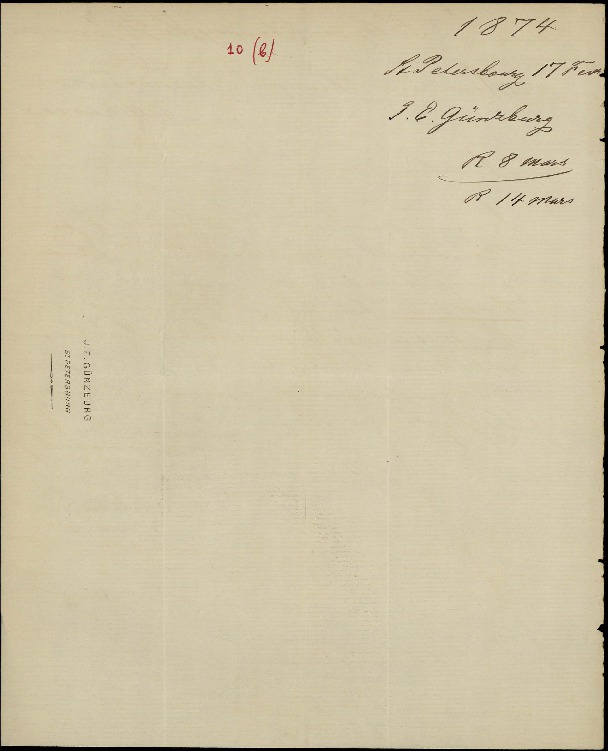 1874
10 (b)
St Petersbourg 17 Fevr
J. E. Günzburg
R 8 mars
R 14 mars
J. E. GÜNZBURG
ST PETERSBURG